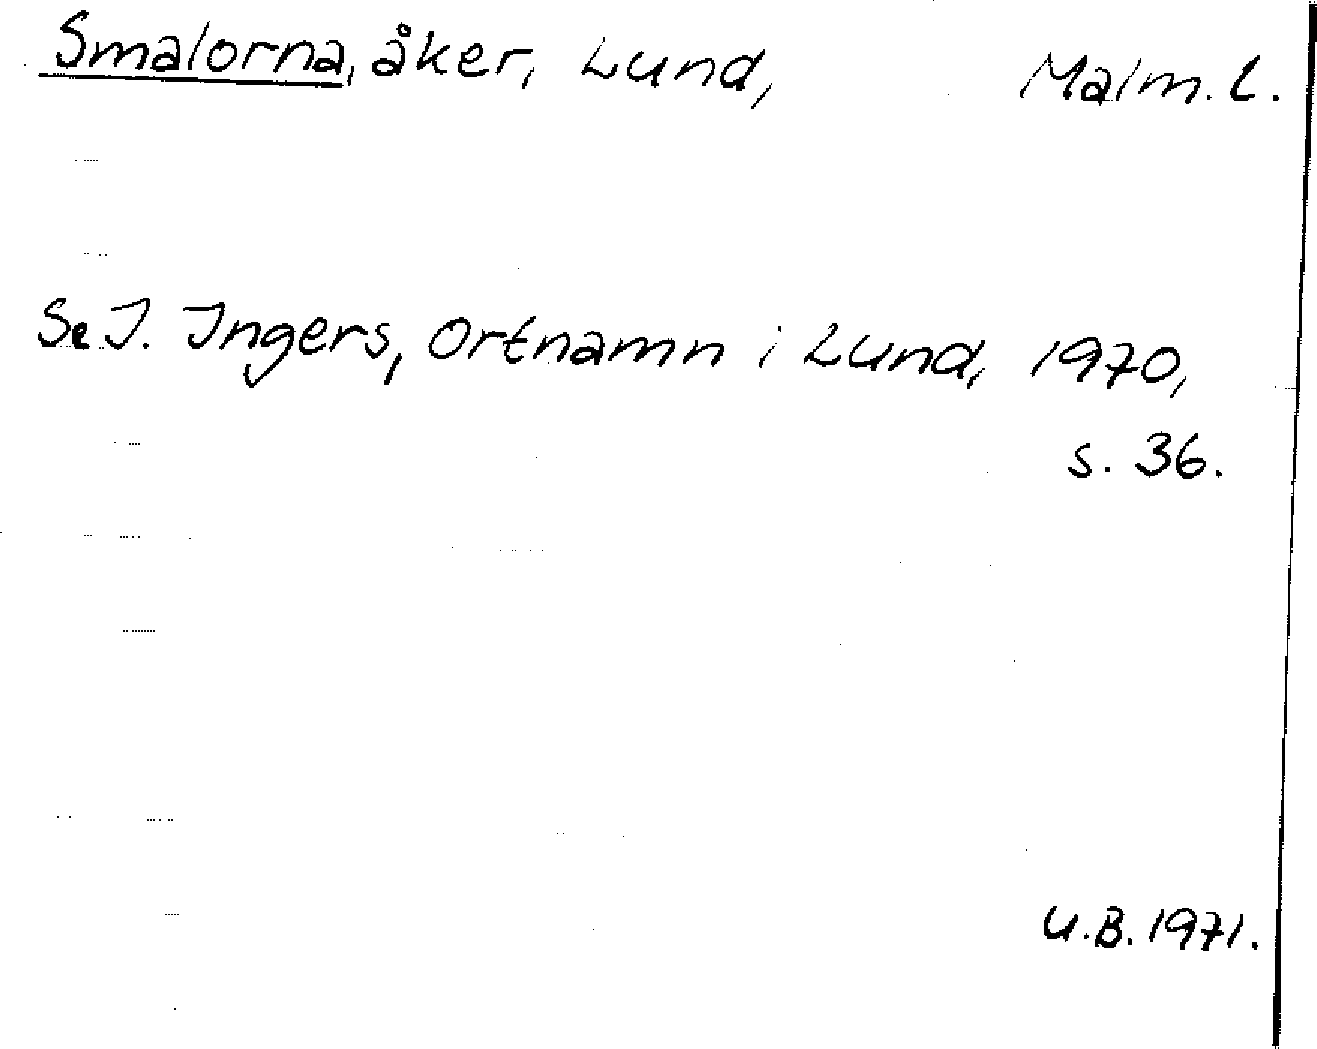 Smalorna, åker, Lund, Malm. L.
Se I. Ingers, Ortnamn i Lund, 1970,
s. 36.
U.B. 1971.